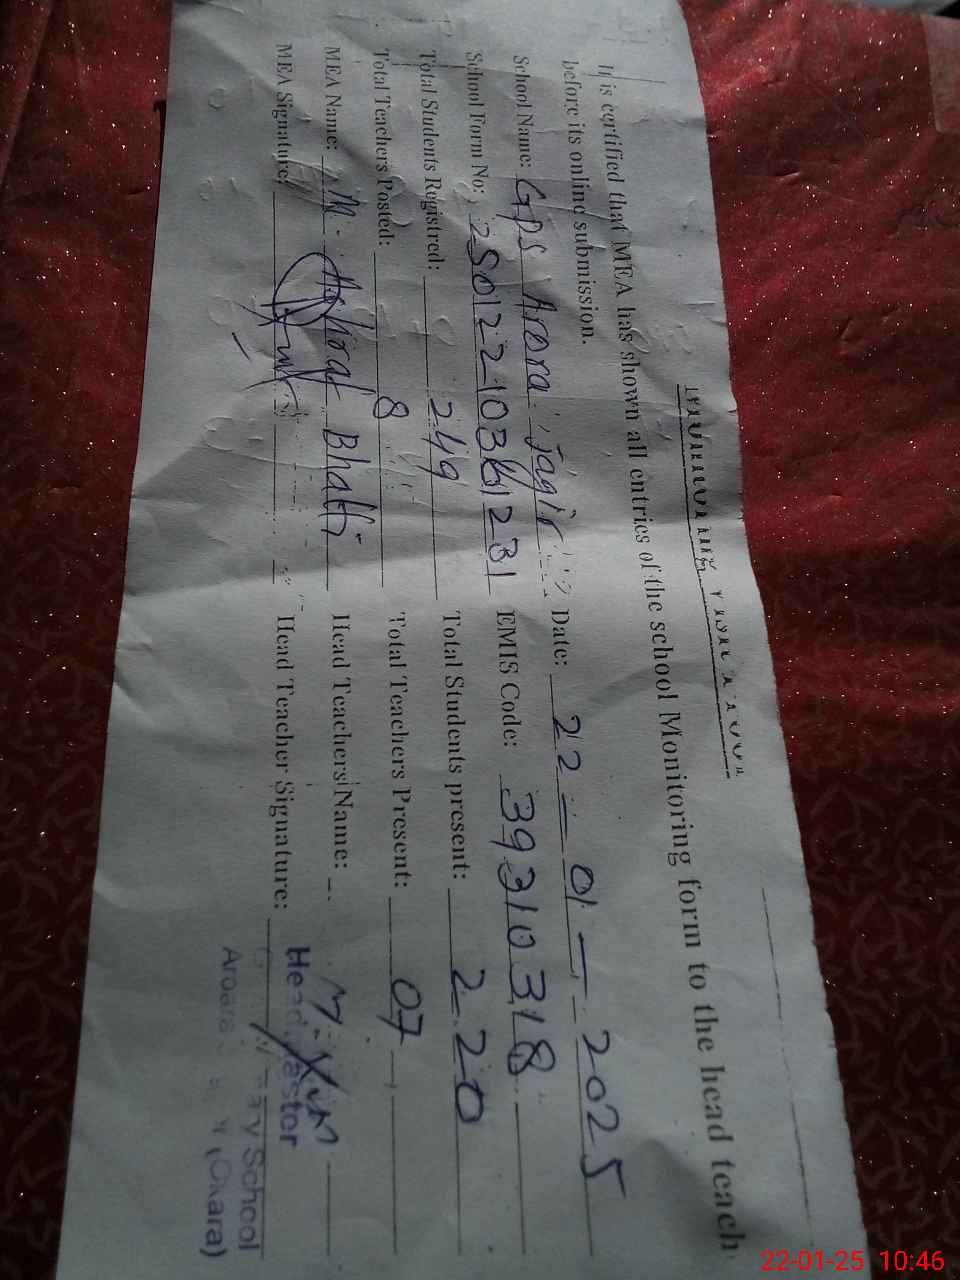 It is certified that MEA has shown all entries of the school Monitoring form to the head teach
before its online submission.
School Name: GPS Arora Jagir Date: 22-01-2025
School Form No: EMIS Code: 39310318
Total Students Registred: 249 Total Students present: 220
Total Teachers Posted: 8 Total Teachers Present: 07
MEA Name: M. Ashraf Bhatti Head Teachers Name:
MEA Signature: Head Teacher Signature:
School
(Okara)
22-01-25 10:46